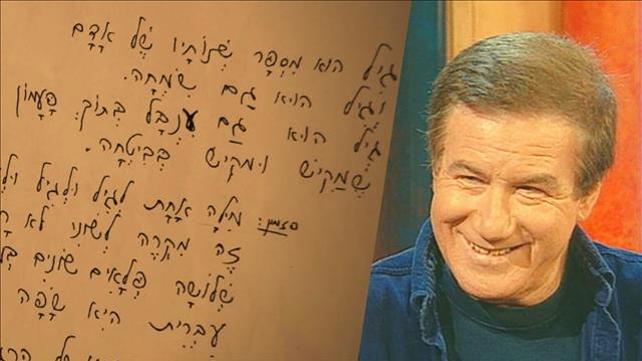 גִּיל הוּא מִסְפַּר שְׁנוֹתָיו שֶׁל אָדָם
וְגִיל הוּא גַּם שִׂמְחָה.
גִּיל הוּא גַּם עִנְבָּל בְּתוֹךְ פַּעֲמוֹן
שֶׁמַּקִּישׁ וּמַקִּישׁ בְּבִטְחָה.
פזמון: מִלָּה אַחַת לְגִיל וּלְגִיל
זֶה מִקְרֶה לְשׁוֹנִי לֹא
שְׁלוֹשָׁה פְּלָאִים שׁוֹנִים
עִבְרִית הִיא שָׂפָה